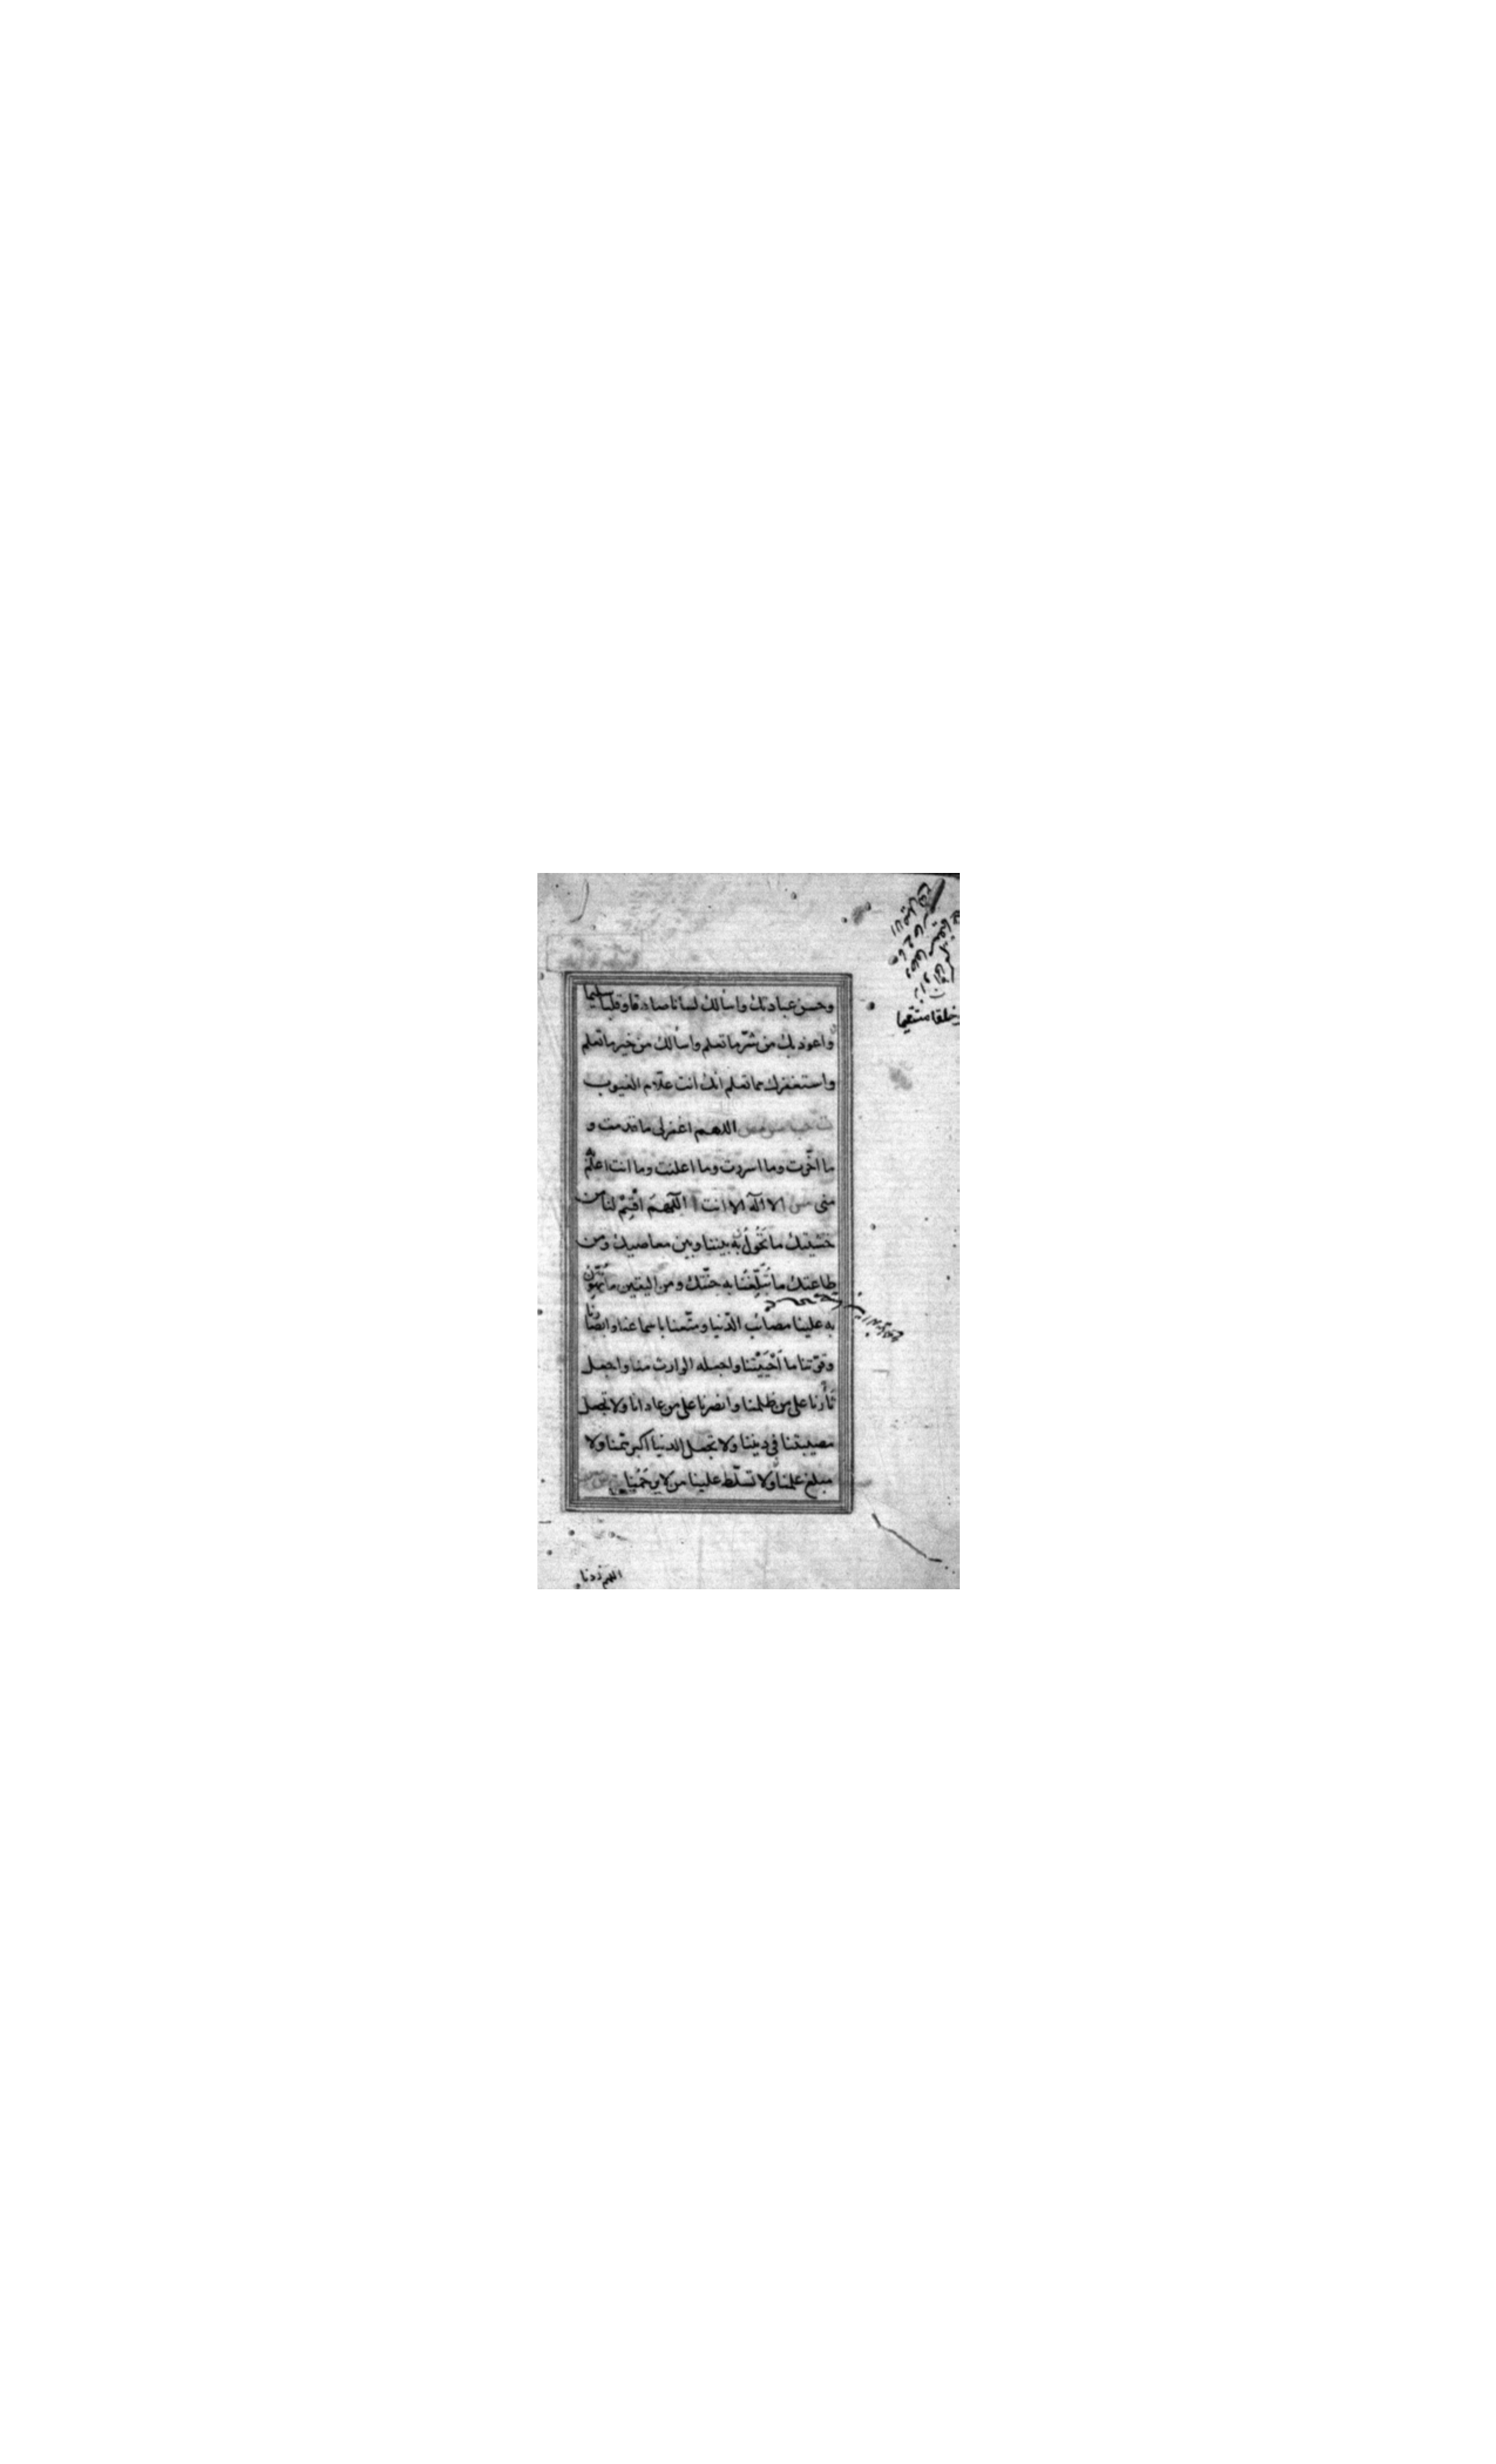 وحسن عبادتك واسألك لسانا صادقا وقلبا سليما
وخلقا مستقيما
واعوذ بك من شرّ ما تعلم واسألك من خير ما تعلم
واستغفرك مما تعلم انك انت علّام الغيوب
اللهم اغفرلى ما قدمت و
ما اخّرت وما اسررت وما اعلنت وما انت اعلم
منى لا اله الا انت اللّهمّ اقسم لنا من
خشيتك ما تحول به بيننا وبين معاصيك ومن
طاعتك ما تبلّغنا به جنّتك ومن اليقين ما تهوّن
به علينا مصائب الدّنيا ومتّعنا باسماعنا وابصارنا
وقوّتنا ما احييتنا واجعله الوارث منا واجعل
ثأرنا على من ظلمنا وانصرنا على من عادانا ولا تجعل
مصيبتنا فى ديننا ولا تجعل الدنيا اكبر همنا ولا
مبلغ علمنا ولا تسلّط علينا من لا يرحمنا
اللهم زدنا